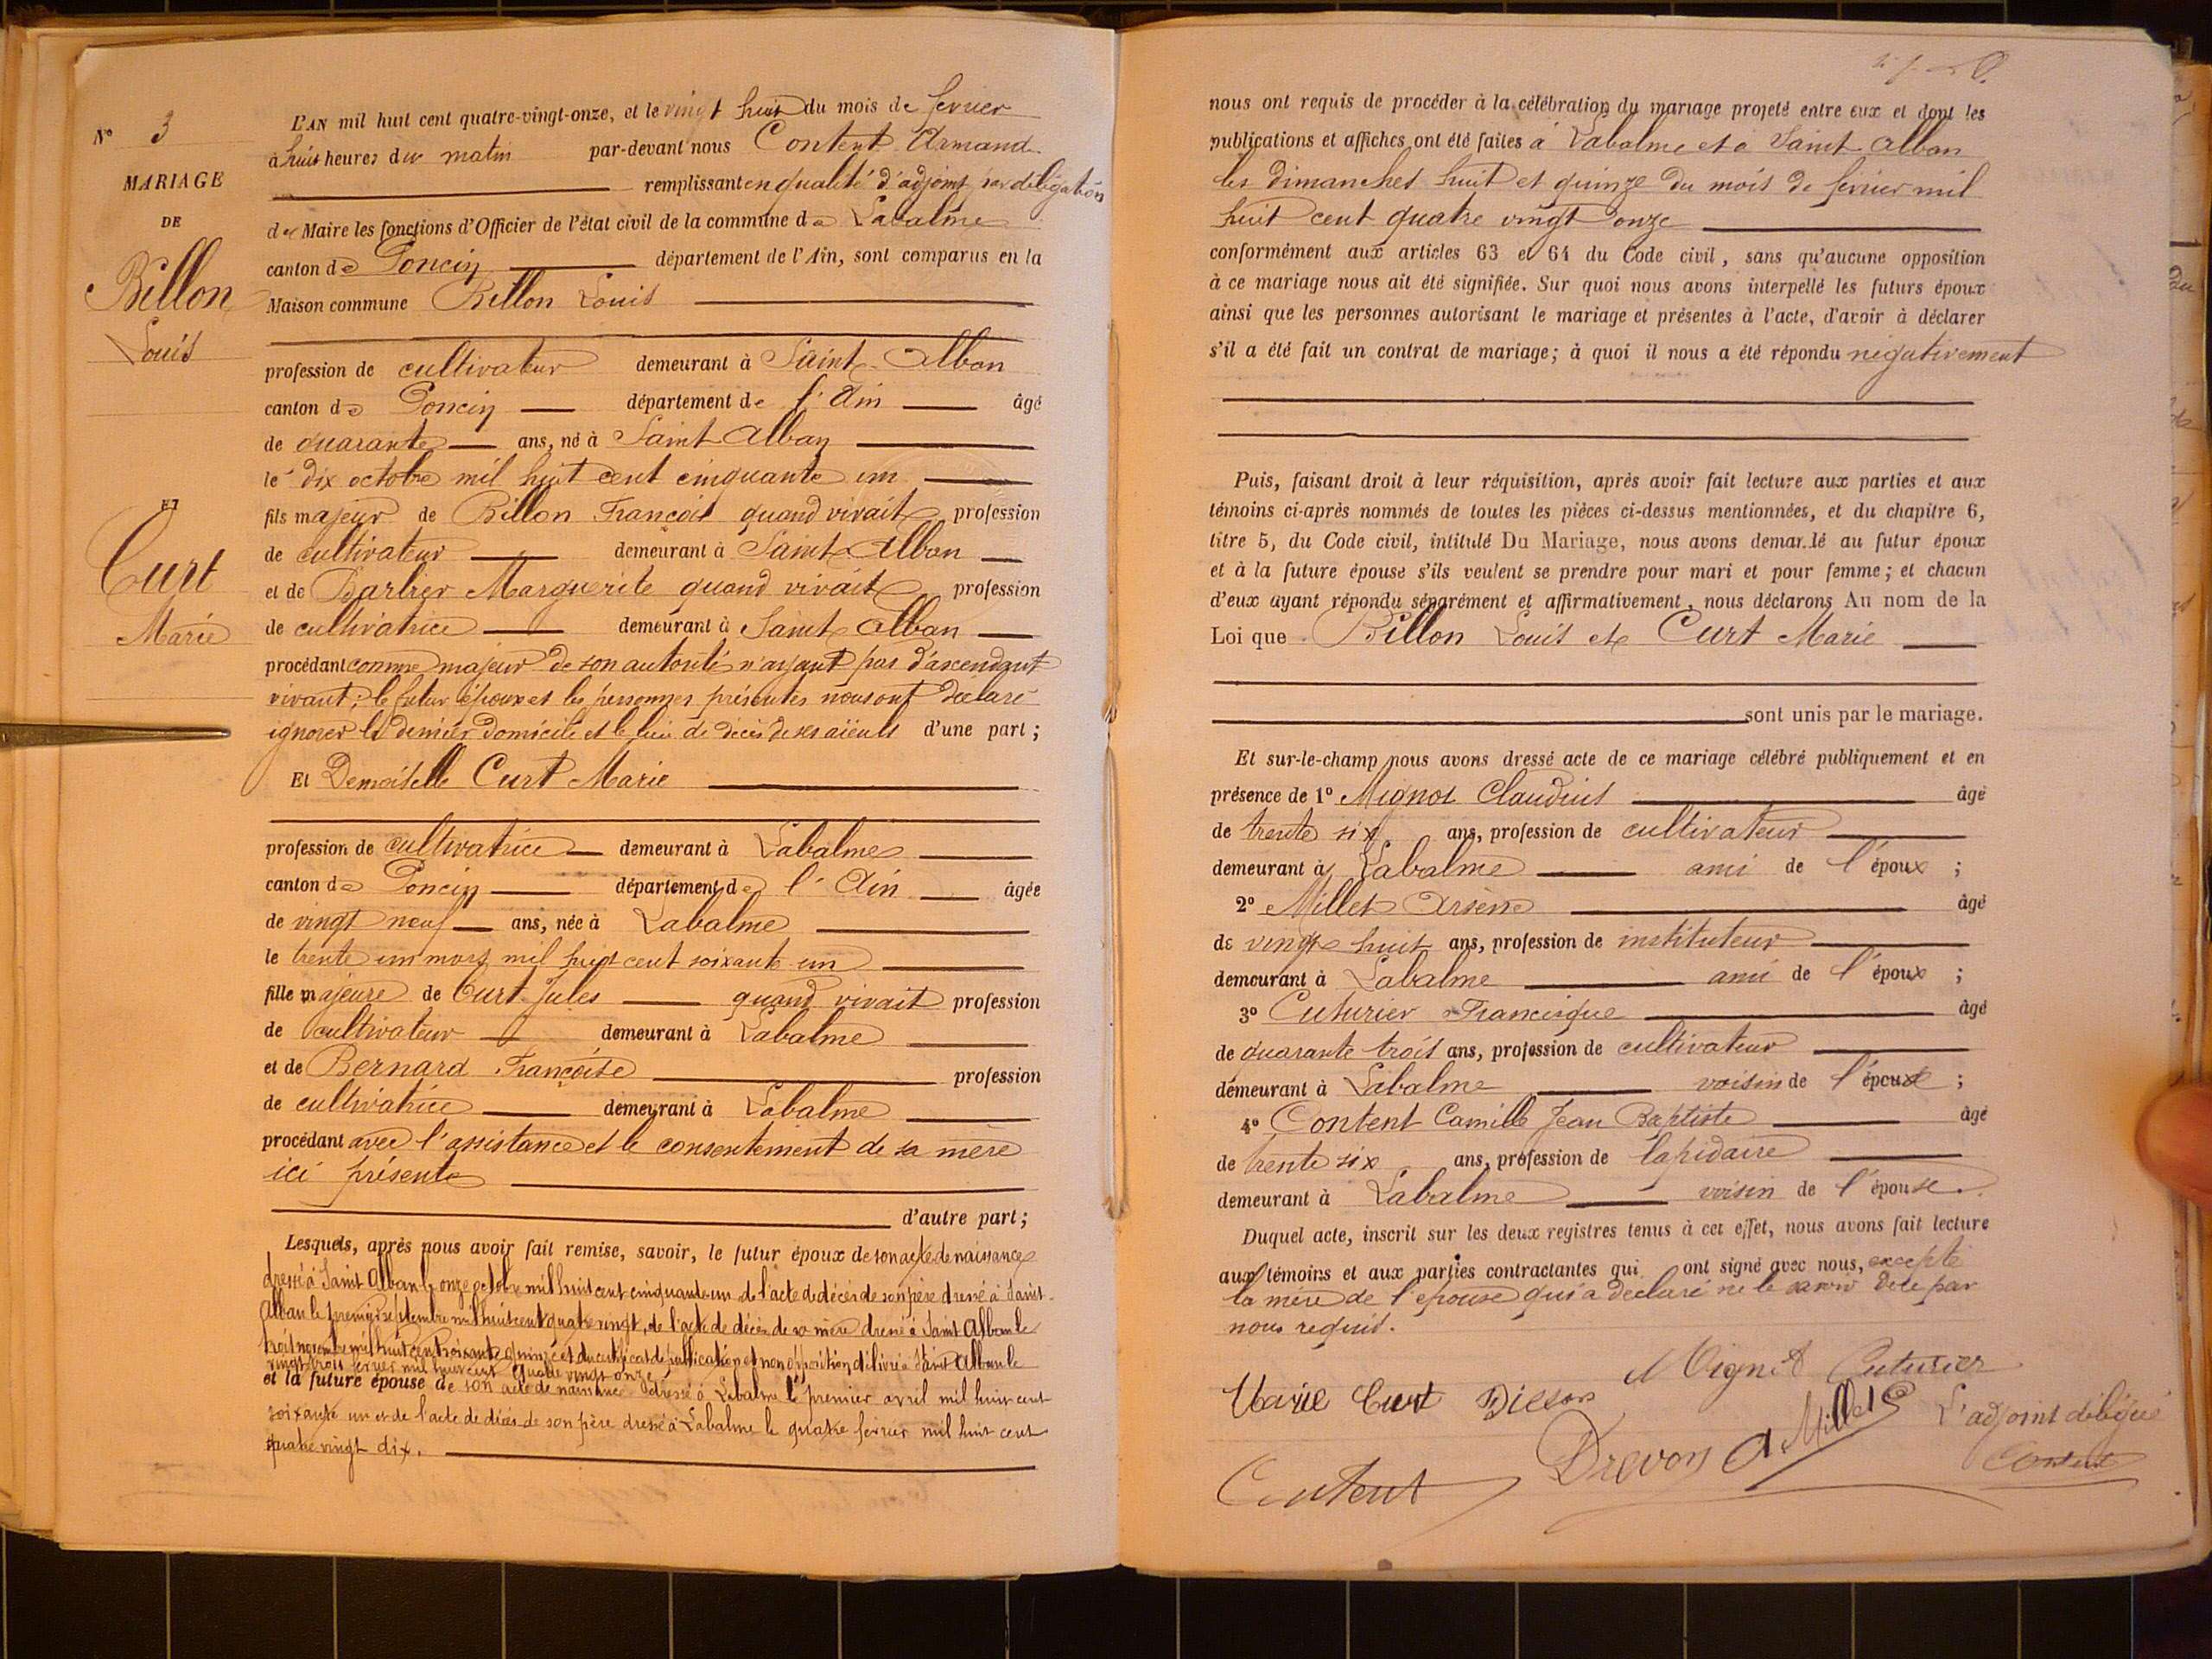 N° 3
MARIAGE
DE
Billon
Louis
ET
Curt
Marie
L'AN mil huit cent quatre-vingt-onze, et le vingt huit du mois de fevrier
à huit heures du matin par-devant nous Content Armand
remplissant en qualité d'adjoint par délégation
de Maire les fonctions d'Officier de l'état civil de la commune de Labalme
canton de Poncin département de l'Ain, sont comparus en la
Maison commune Billon Louis
profession de cultivateur demeurant à Saint-Alban
canton de Poncin département de l'Ain âgé
de quarante ans, né à Saint Alban
le dix octobre mil huit cent cinquante un
fils majeur de Billon François quand vivait profession
de cultivateur demeurant à Saint Alban
et de Barlier Marguerite quand vivait profession
de cultivatrice demeurant à Saint Alban
procédant comme majeur de son autorité n'ayant pas d'ascendant
vivant; le futur époux et les personnes présentes nous ont déclaré
ignorer le dernier domicile et le lieu de décès de ses aïeuls d'une part;
Et Demoiselle Curt Marie
profession de cultivatrice demeurant à Labalme
canton de Poncin département de l'Ain âgée
de vingt neuf ans, née à Labalme
le trente un mars mil huit cent soixante un
fille majeure de Curt Jules quand vivait profession
de cultivateur demeurant à Labalme
et de Bernard Françoise profession
de cultivatrice demeurant à Labalme
procédant avec l'assistance et le consentement de sa mère
ici présente
d'autre part;
Lesquels, après nous avoir fait remise, savoir, le futur époux de son acte de naissance
dressé à Saint Alban le onze octobre mil huit cent cinquante un de l'acte de décès de son père dressé à Saint-
Alban le premier septembre mil huit cent quatre vingt, de l'acte de décès de sa mère dressé à Saint Alban le
trois novembre mil huit cent soixante quinze et du certificat de publication et non opposition délivré à Saint Alban le
vingt trois fevrier mil huit cent quatre vingt onze
et la future épouse de son acte de naissance dressé à Labalme le premier avril mil huit cent
soixante un et de l'acte de décès de son père dressé à Labalme le quatre fevrier mil huit cent
quatre vingt dix.
nous ont requis de procéder à la célébration du mariage projeté entre eux et dont les
publications et affiches ont été faites à Labalme et à Saint Alban
les dimanches huit et quinze du mois de fevrier mil
huit cent quatre vingt onze
conformément aux articles 63 et 64 du Code civil, sans qu'aucune opposition
à ce mariage nous ait été signifiée. Sur quoi nous avons interpellé les futurs époux
ainsi que les personnes autorisant le mariage et présentes à l'acte, d'avoir à déclarer
s'il a été fait un contrat de mariage; à quoi il nous a été répondu négativement
Puis, faisant droit à leur réquisition, après avoir fait lecture aux parties et aux
témoins ci-après nommés de toutes les pièces ci-dessus mentionnées, et du chapitre 6,
titre 5, du Code civil, intitulé Du Mariage, nous avons demandé au futur époux
et à la future épouse s'ils veulent se prendre pour mari et pour femme; et chacun
d'eux ayant répondu séparément et affirmativement, nous déclarons Au nom de la
Loi que Billon Louis et Curt Marie
sont unis par le mariage.
Et sur-le-champ nous avons dressé acte de ce mariage célébré publiquement et en
présence de 1° Mignot Claudius âgé
de trente six ans, profession de cultivateur
demeurant à Labalme ami de l'époux;
2° Millet Arsène âgé
de vingt huit ans, profession de instituteur
demeurant à Labalme ami de l'époux;
3° Cuturier Francisque âgé
de quarante trois ans, profession de cultivateur
demeurant à Labalme voisin de l'épouse;
4° Content Camille Jean Baptiste âgé
de trente six ans, profession de lapidaire
demeurant à Labalme voisin de l'épouse.
Duquel acte, inscrit sur les deux registres tenus à cet effet, nous avons fait lecture
aux témoins et aux parties contractantes qui ont signé avec nous, excepté
la mère de l'épouse qui a déclaré ne le savoir de ce par
nous requis.
Mignot Cuturier
Marie Curt Billon
Drevon A Millet L'adjoint délégué
Content Content